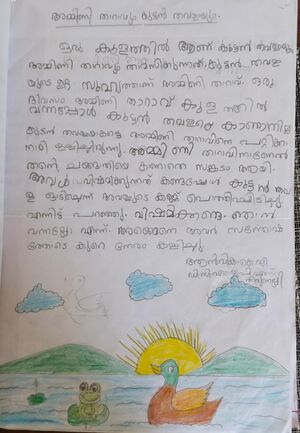 അമ്മിണി താറാവും കുട്ടൻ തവളയും.
ഒരു കുളത്തിൽ ആണ് കുട്ടൻ തവളയും
അമ്മിണി താറാവും താമസിക്കുന്നത്. കുട്ടൻ തവള
യുടെ ഉറ്റ സുഹൃത്താണ് അമ്മിണി താറാവ്. ഒരു
ദിവസം അമ്മിണി താറാവ് കുളത്തിൽ
വന്നപ്പോൾ കുട്ടൻ തവളയെ കാണാനില്ല
കുട്ടൻ തവളയാകട്ടെ അമ്മിണി താറാവിനെ പറ്റിക്കാ
നായി ഒളിച്ചിരുന്നു. അമ്മിണി താറാവിനാണേൽ
തന്റെ ചങ്ങാതിയെ കാണാതെ സങ്കടം ആയി.
അവൾ വിഷമിക്കുന്നത് കണ്ടപ്പോൾ കുട്ടൻ തവ
ള അവളുടെ കണ്ണ് പൊത്തിപ്പിടിച്ചു
എന്നിട്ട് പറഞ്ഞു. വിഷമിക്കണ്ട ഞാൻ
വന്നല്ലോ എന്ന്. അങ്ങനെ അവർ സന്തോഷ
ത്തോടെ കുറെ നേരം കളിച്ചു.